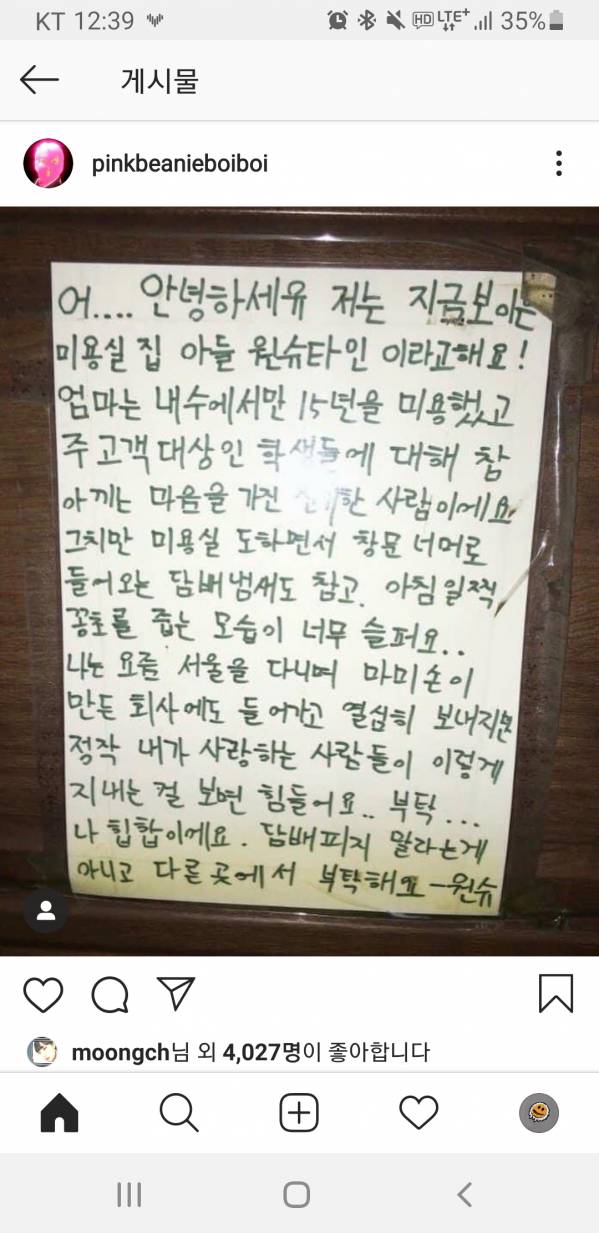 KT 12:39
HD LTE+ 35%
게시물
pinkbeanieboiboi
어.... 안녕하세유 저는 지금보이는
미용실 집 아들 원슈타인 이라고해요!
엄마는 내수에서만 15년을 미용했고
주고객대상인 학생들에 대해 참
아끼는 마음을 가진 사람이에요
그치만 미용실 도하면서 창문너머로
들어오는 담배냄새도 참고, 아침일찍
꽁초를 줍는 모습이 너무 슬퍼요..
나는 요즘 서울을 다니며 마미손이
만든 회사에도 들어가고 열심히 보내지만
정작 내가 사랑하는 사람들이 이렇게
지내는 걸 보면 힘들어요.. 부탁...
나 힙합이에요. 담배피지 말라는게
아니고 다른곳에서 부탁해요-원슈
moongch님 외 4,027명이 좋아합니다